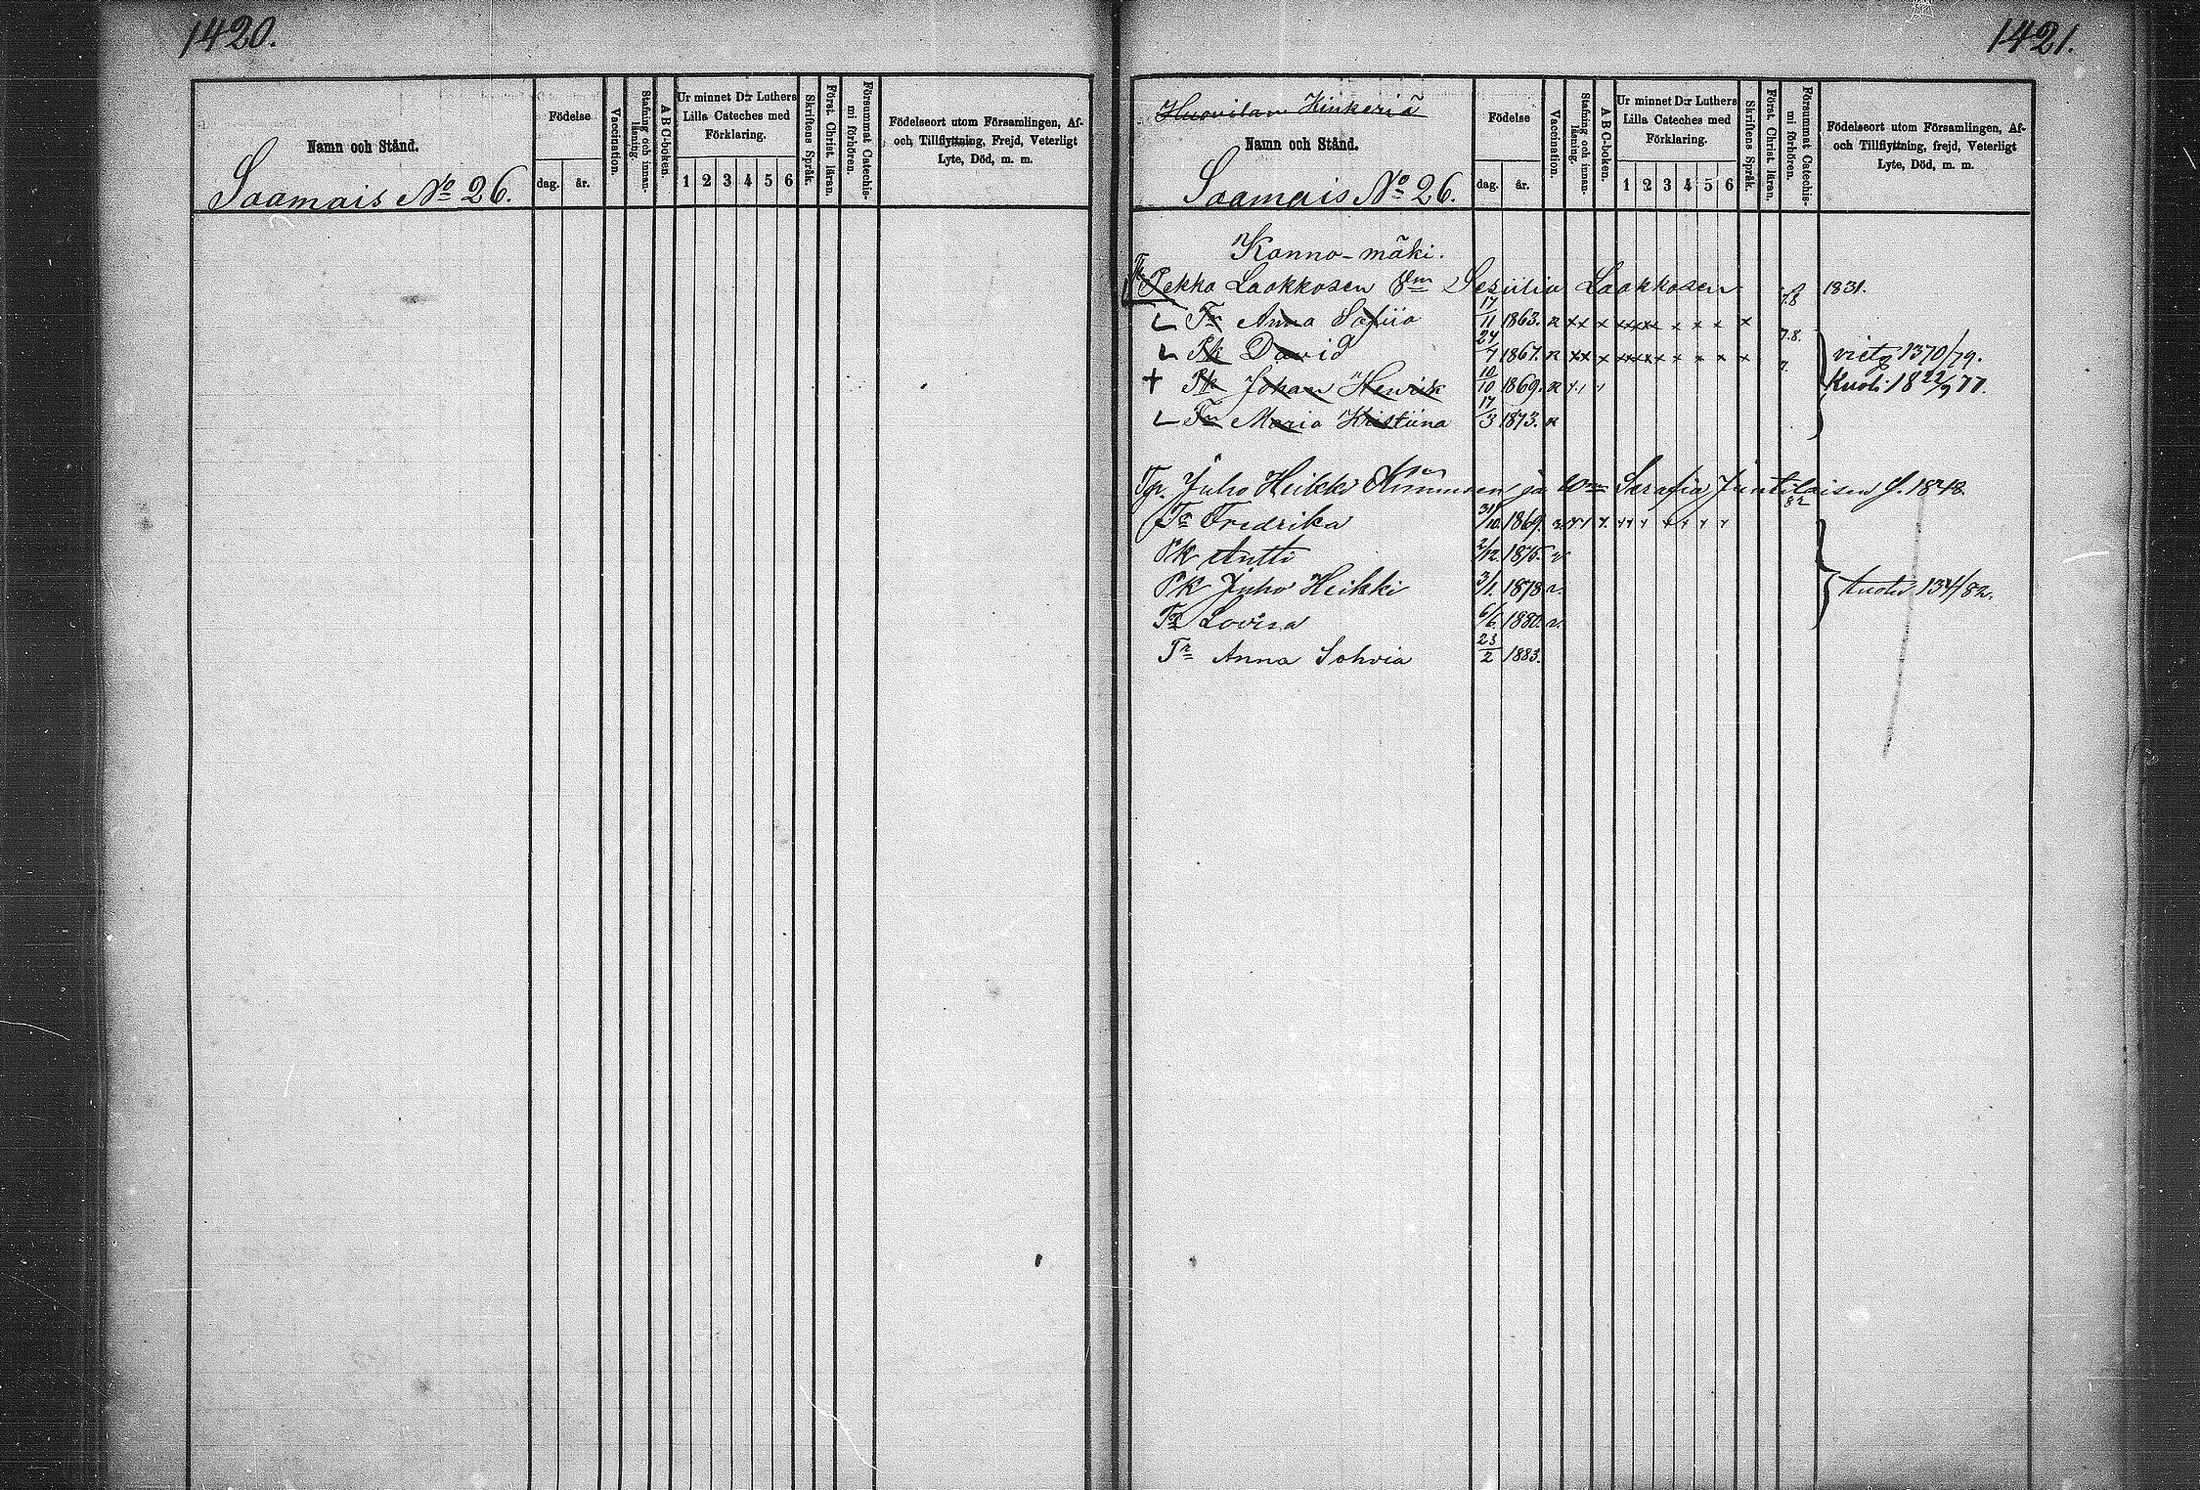 1420.
Namn och Stånd.
Saamais No 26.
Födelse
dag. år.
Vaccination.
Stafning och innan-
läsning.
A B C-boken.
Ur minnet D:r Luthers
Lilla Cateches med
Förklaring.
1 2 3 4 5 6
Skriftens Språk.
Först. Christ. läran.
Försummat Catechis-
mi förhören.
Födelseort utom Församlingen, Af-
och Tillflyttning, Frejd, Veterligt
Lyte, Död, m. m.
1421.
Huovilan Kinkeriä
Namn och Stånd.
Saamais No 26.
Födelse
dag. år.
Vaccination.
Stafning och innan-
läsning.
A B C-boken.
Ur minnet D:r Luthers
Lilla Cateches med
Förklaring.
1 2 3 4 5 6
Skriftens Språk.
Först. Christ. läran.
Försummat Catechis-
mi förhören.
Födelseort utom Församlingen, Af-
och Tillflyttning, frejd, Veterligt
Lyte, Död, m. m.
Konno-mäki.
Pekka Laakkosen Laakkosen 1831.
Tr Anna Sofiia 17/11 1863.
Pk David 24/4 1867. 1370/79.
Pk Johan Henrik 10/10 1869. Kuoli 18 22/9 77.
Tr Maria Kristiina 17/3 1873.
Juho Heikki ja Serafia f. 1848
Tr Fredrika 1869
Pk Antti 2/12 1875.
Pk Juho Heikki 3/1 1878
Tr Lovisa 6/6 1880
Tr Anna Sohvia 23/2 1883.